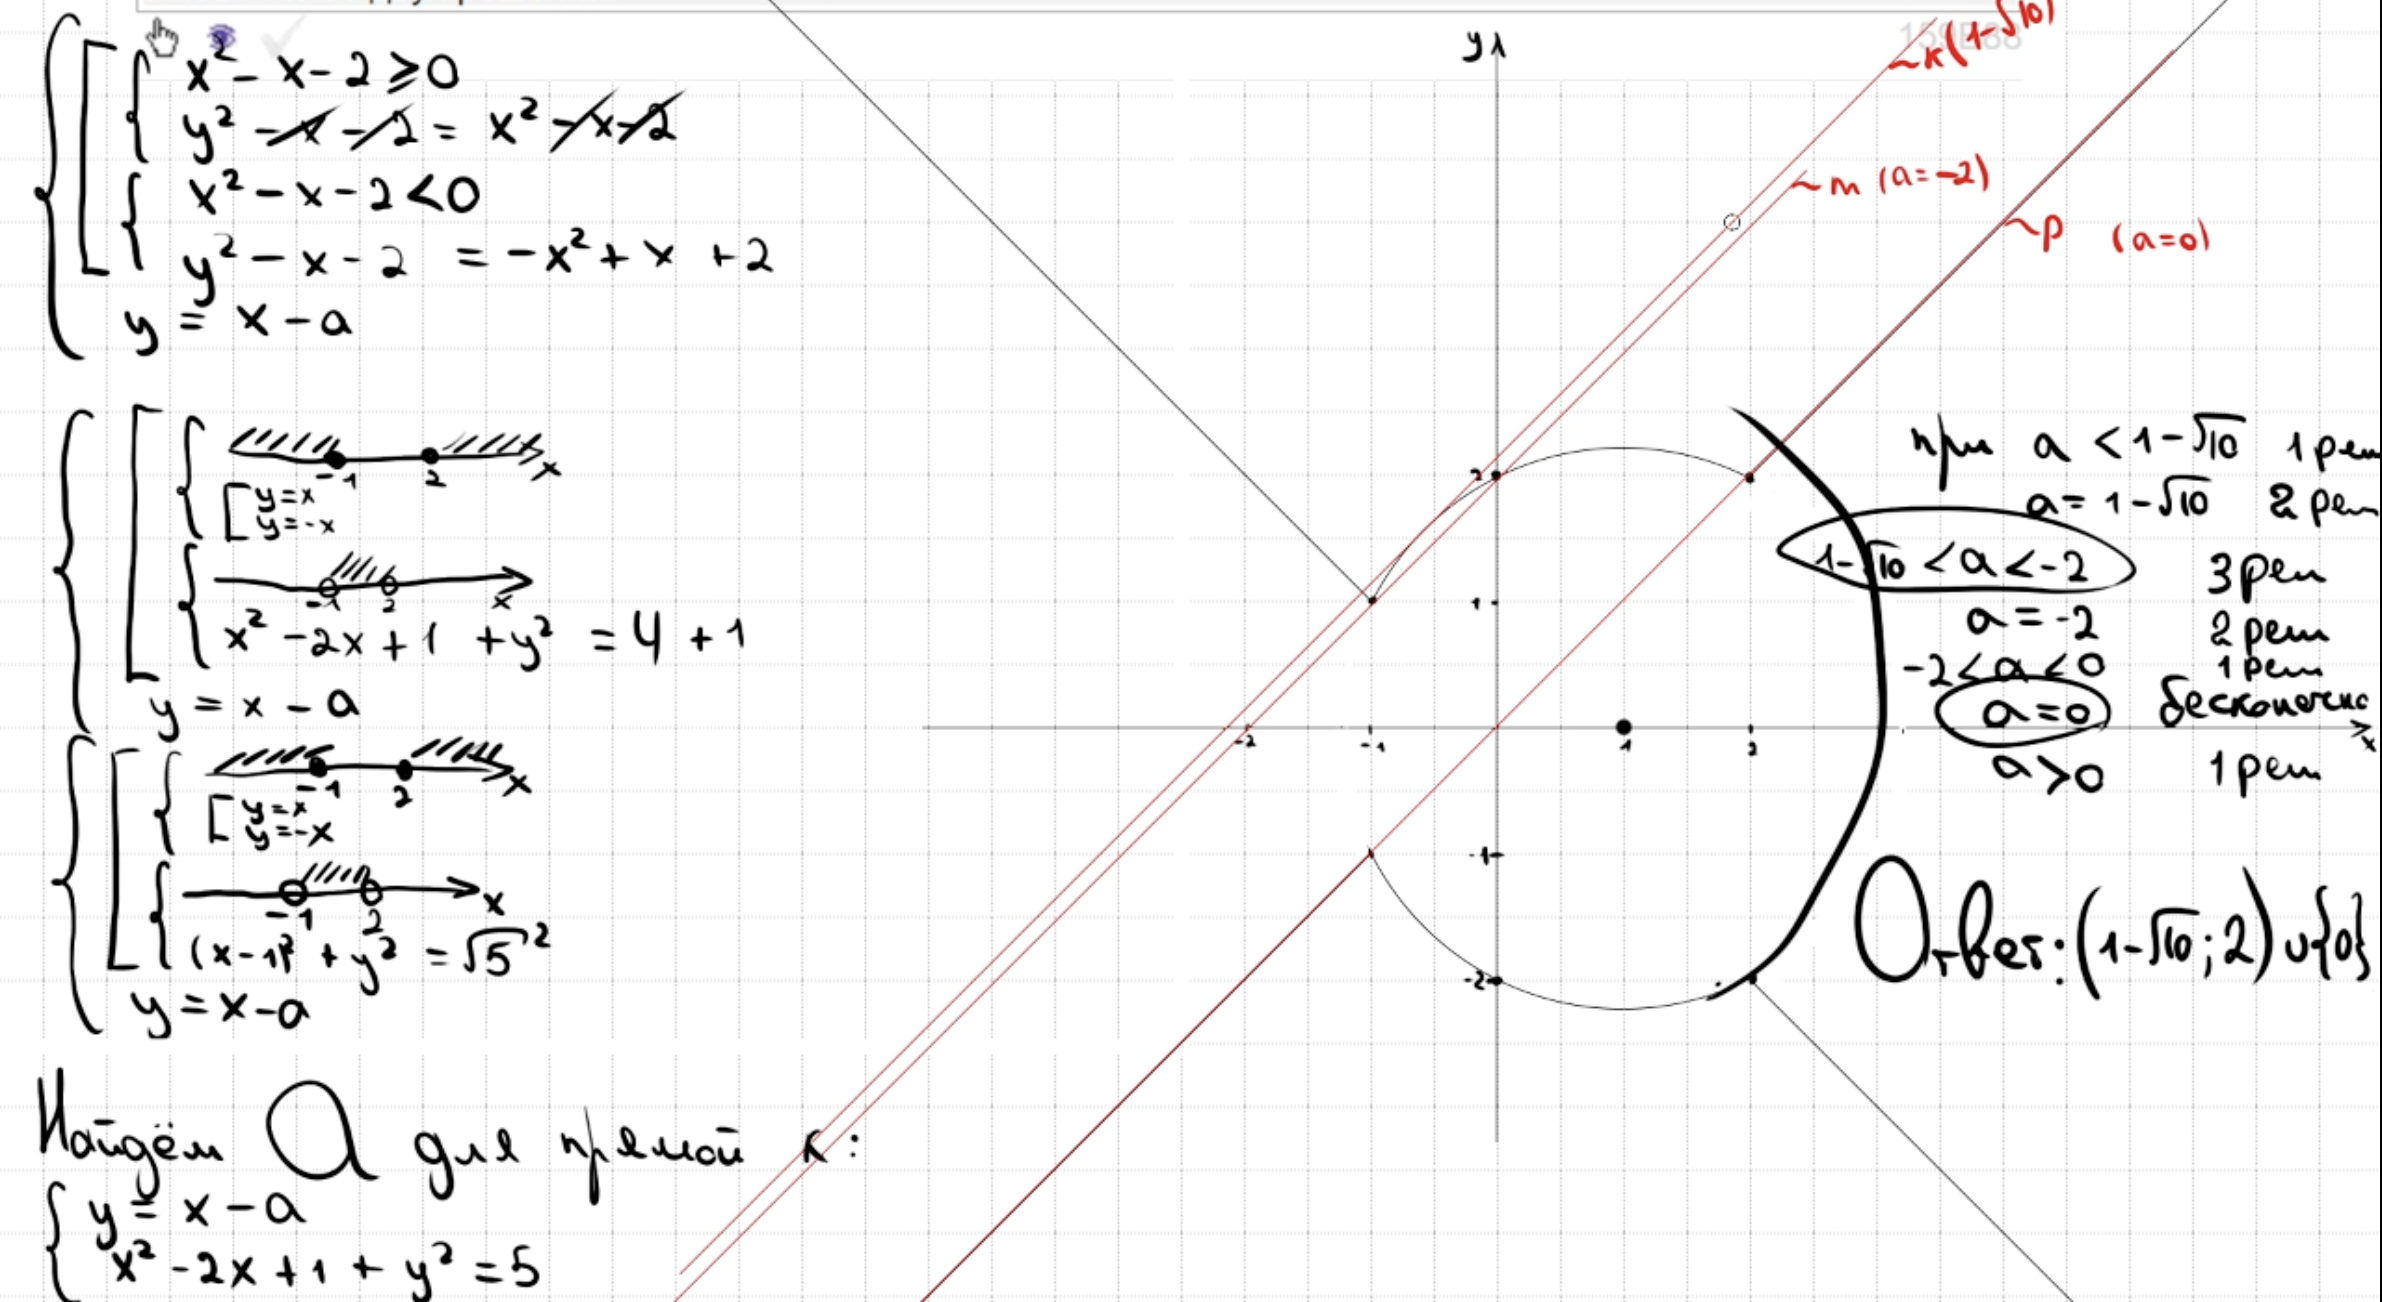 x² - x - 2 ⩾ 0
y² - x - 2 = x² - x - 2
x² - x - 2 < 0
y² - x - 2 = -x² + x + 2
y = x - a
-1 2 x
y = x
y = -x
-1 2 x
x² - 2x + 1 + y² = 4 + 1
y = x - a
-1 2 x
y = x
y = -x
-1 2 x
(x - 1)² + y² = √5²
y = x - a
Найдём a для прямой к:
y = x - a
x² - 2x + 1 + y² = 5
y
к (1-√10)
m (a=-2)
p (a=0)
2
1
-2 -1 1 2 x
-1
-2
при a < 1-√10 1 реш
a = 1-√10 2 реш
1-√10 < a < -2 3 реш
a = -2 2 реш
-2 < a < 0 1 реш
a = 0
a > 0 1 реш
Ответ: (1-√10; 2) ∪ {0}